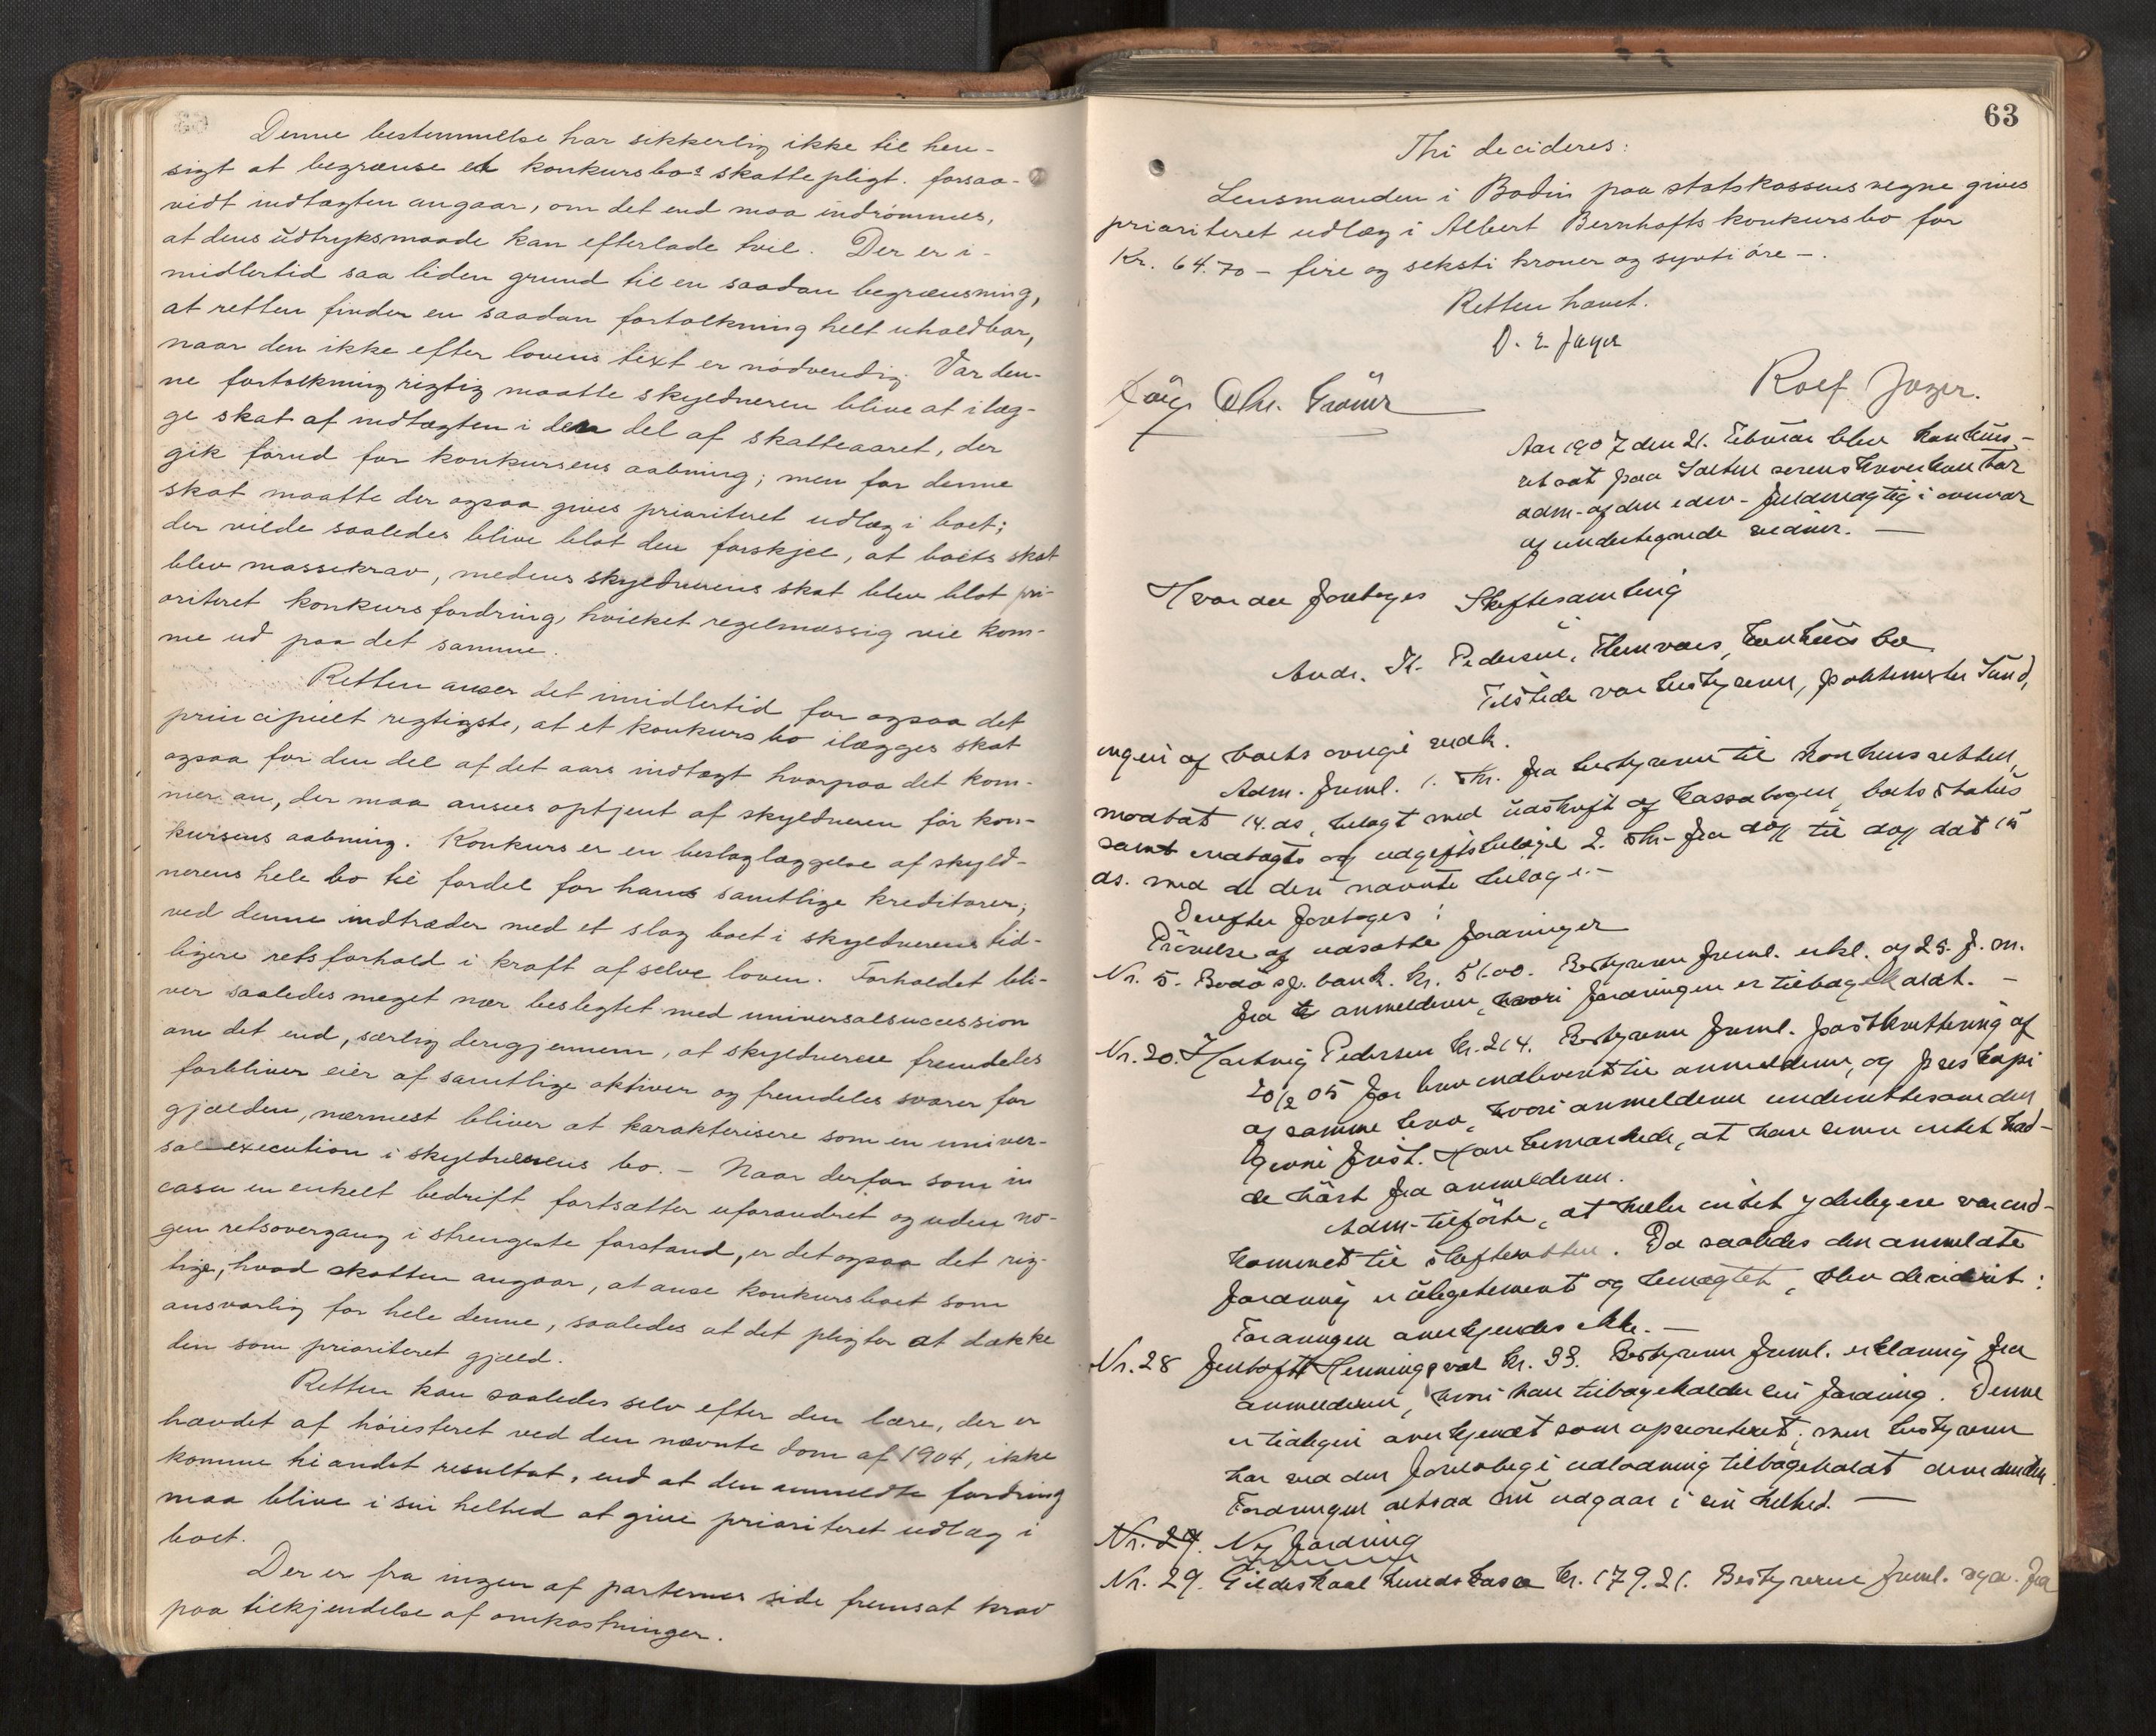 Denne bestemmelse har sikkerlig ikke til hen-
sigt at begrænse et konkursbos skattepligt. forsaa-
vidt indtægten angaar, om det end maa indrömmes,
at dens udtryksmaade kan efterlade tvil. Der er i-
midlertid saa liden grund til en saadan begrænsning,
at retten finder en saadan fortolkning helt uholdbar,
naar den ikke efter lovens text er nödvendig. Var den-
ne fortolkning rigtig maatte skyldneren blive at ilæg-
ge skat af indtægten i den del af skatteaaret, der
gik forud for konkursens aabning; men for denne
skat maatte der ogsaa gives prioriteret udlæg i boet;
der vilde saaledes blive blot den forskjel, at boets skat
blev massekrav, medens skyldnerens skat blev blot pri-
oriteret konkursfordring, hvilket regelmæssig vil kom-
me ud paa det samme.
Retten anser det imidlertid for ogsaa det
principielt rigtigste, at et konkursbo ilægges skat
ogsaa for den del af det aars indtægt hvorpaa det kom-
mer an, der maa ansees optjent af skyldneren för kon-
kursens aabning. Konkurs er en beslaglæggelse af skyld-
nerens hele bo til fordel for hans samtlige kreditorer;
ved denne indtræder med et slag boet i skyldnerens tid-
ligere retsforhold i kraft af selve loven. Forholdet bli-
ver saaledes meget nær beslegtet med universalsuccession
om det end, særlig derigjennem, at skyldneren fremdeles
forbliver eier af samtlige aktiver og fremdeles svarer for
gjælden, nærmest bliver at karakterisere som en univer-
salexecution i skyldnerens bo. - Naar derfor som in
casu en enkelt bedrift fortsætter uforandret og uden no-
gen retsovergang i strengeste forstand, er det ogsaa det rig-
tige, hvad skatten angaar, at anse konkursboet som
ansvarlig for hele denne, saaledes at det pligter at dække
den som prioriteret gjæld.
Retten kan saaledes selv efter den lære, der er
hævdet af höiesteret ved den nævnte dom af 1904, ikke
komme til andet resultat, end at den anmeldte fordring
maa blive i sin helhed at give prioriteret udlæg i
boet.
Der er fra ingen af parternes side fremsat krav
paa tilkjendelse af omkostninger.
63
Thi decideres:
Lensmanden i Bodin paa statskassens vegne gives
prioriteret udlæg i Albert Bernhofts konkursbo for
Kr. 64.70 - fire og seksti kroner og sytti öre -.
Retten hævet.
O. E. Jæger
Rolf Jæger.
Chr.
Aar 1907 den 21. februar blev konkurs-
ret sat paa Salten sorenskriverkontor
adm. af den edsv. fuldmægtig i overvær
af undertegnede vidner. -
Hvorda foretoges Skiftesamling
Andr. K. Pedersen, , konkursbo
Tilstede var bestyreren, politimester Sund,
ingen af boets övrige vedk.
Adm. freml. 1. skr. fra bestyreren til konkursretten,
modtat 14. ds, belagt med udskrift af kassabogen, boets status
samt indtægts og udgiftsbilage 2. skr. fra dag til dag dat 15
ds. med de deri nævnte bilage. -
Derefter foretoges:
Prövelse af udsatte fordringer
Nr. 5. Bodö sp. bank. kr. 51.00. Bestyreren freml. erkl. af 25. f. m.
fra anmelderen, hvori fordringen er tilbagekaldt. -
Nr. 20. Hartvig Pedersen kr. 214. Bestyreren freml. postkvittering af
20/2 05 for brev indleveret til anmelderen, og preskopi
af samme brev, hvori anmelderen underrettes om den
givne frist. Han bemærkede, at han senere intet had-
de hört fra anmelderen.
Adm. tilförte, at heller intet yderligere var ind-
kommet til skifteretten. Da saaledes den anmeldte
fordring er ulegitimeret og benægtet, blev decideret:
Fordringen anerkjendes ikke. -
Nr. 28 Jentoft Henningsvær kr. 33. Bestyreren freml. erklæring fra
anmelderen, hvori han tilbagekalder sin fordring. Denne
er tidligere anerkjendt som uprioriteret; men bestyreren
har ved den forelöbige udlodning tilbageholdt dividenden.
Fordringen altsaa nu udgaar i sin helhed. -
Nr. 29. Ny fordring
Nr. 29. Gildeskaal herredskasse kr. 179.21. Bestyreren freml. fra